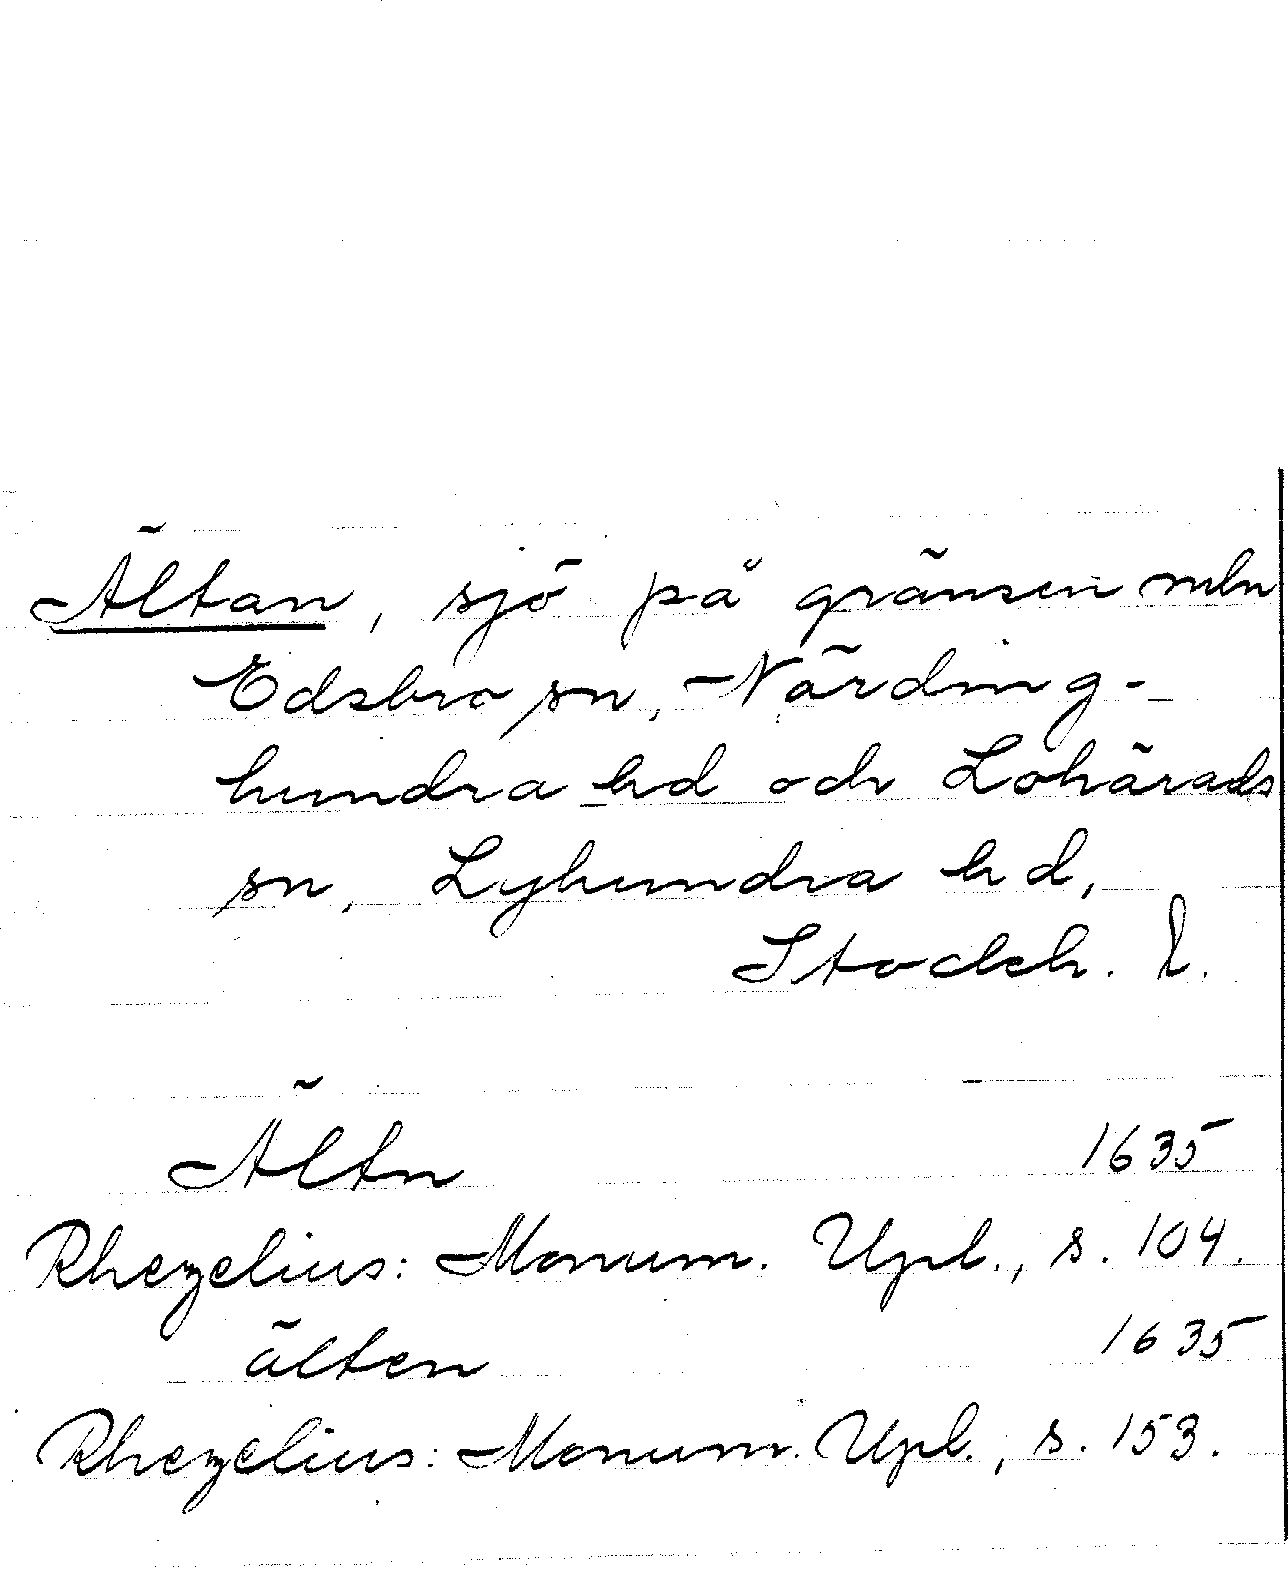 Ältan, sjö på gränsen mln
Edsbro sn, Närding-
hundra hd och Lohärads
sn, Lyhundra hd,
Stockh. l.
Ältn 1635
Rhezelius: Monum. Upl., s. 104.
älten 1635
Rhezelius: Monum. Upl., s. 153.